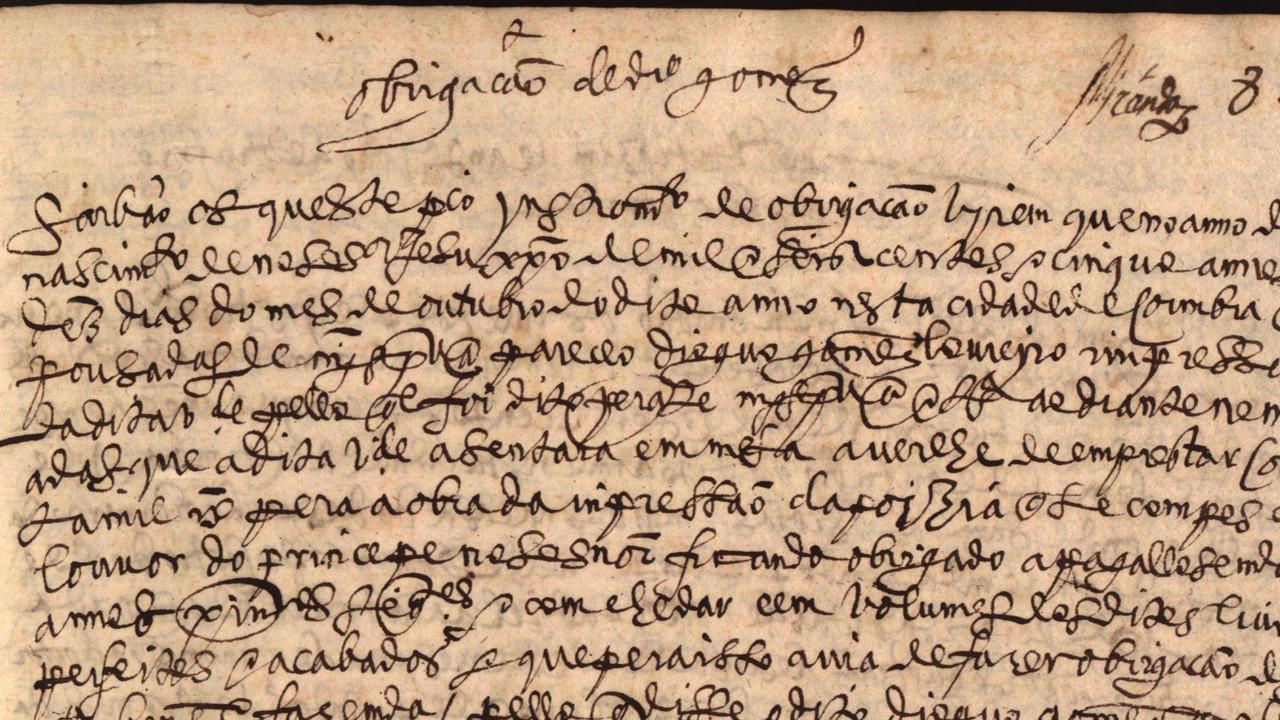 obrigacão de dio gomez
Miranda 3
Saibão os que este pco ynstromto de obrigacão virem que no anno d
nascimto de noso sõr Jesu xpõ de mil e seis centos e cinque annos
dez dias do mes de outubro do dito anno nesta cidade de Coimbra
pousadas de mỹ spvã pareceo dioguo gomez loureiro impresso
da dita e pello qĺ foi dito perante as adiante nom
adas que a dita asentara em mesa averlhe de emprestar
ta mil rs̃ pera a obra da impressão da poizia q̃ se compos
louvor do principe noso snõr ficando obrigado a pagallos em d
annos primros segtes e com lhe dar cem volumes dos ditos liv
perfeitos e acabados e que pera isso avia de fazer obrigacão d
fazenda / pello disse o dito dioguo